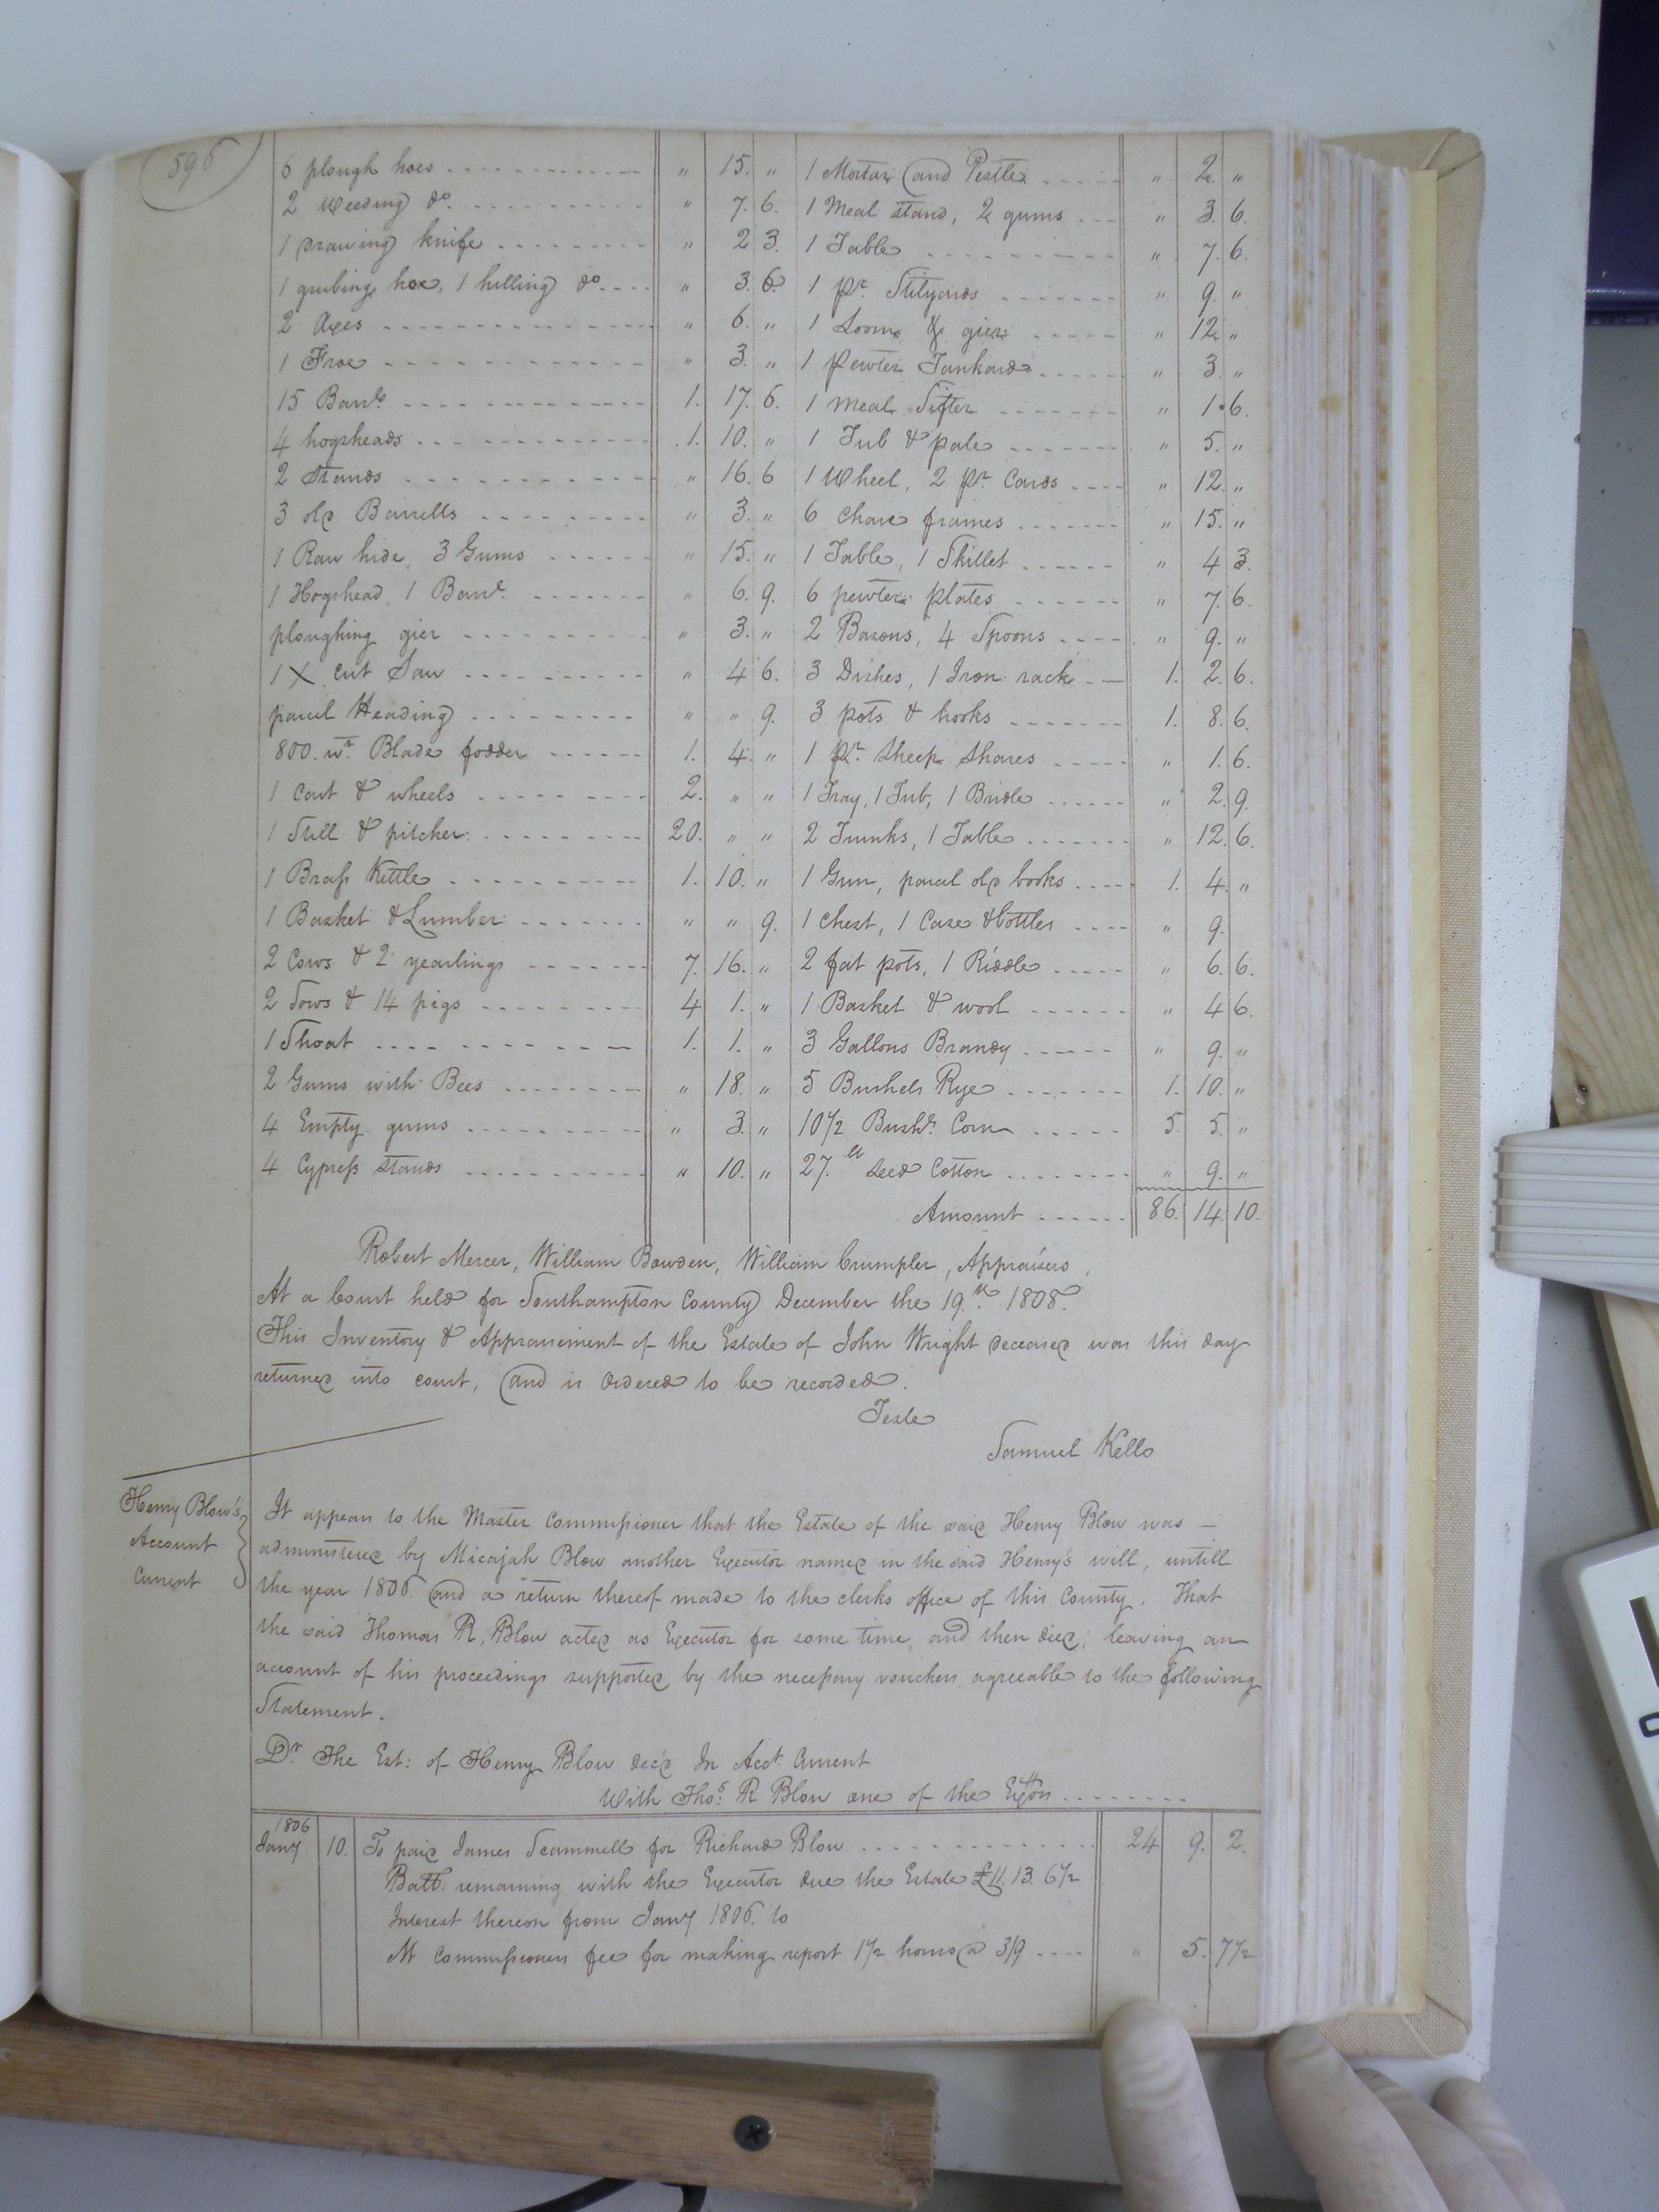 596
6 plough hoes " 15. " 1 Mortar and Pestle " 2. "
2 weeding do. " 7. 6. 1 Meal stand, 2 gums " 3. 6.
1 Drawing knife " 2 3. 1 Table " 7. 6.
1 grubing hoe, 1 hilling do. " 3. 6. 1 pr. Stilyards " 9. "
2 Axes " 6. " 1 Loom & gier " 12. "
1 Froe " 3. " 1 pewter Tankard " 3. "
15 Barrls 1. 17. 6. 1 meal Sifter " 1. 6.
4 hogsheads 1. 10. " 1 Tub & pale " 5. "
2 Stands " 16. 6 1 Wheel, 2 pr. Cards " 12. "
3 old Barrells " 3. " 6 Chare frames " 15. "
1 Raw hide, 3 Gums " 15. " 1 Table, 1 Skillet " 4 3.
1 Hogshead, 1 Barrl. " 6. 9. 6 pewter plates " 7. 6.
ploughing gier " 3. " 2 Basons, 4 Spoons " 9. "
1 X cut Saw " 4 6. 3 Dishes, 1 Iron rack 1. 2. 6.
parcel Heading " " 9. 3 pots & hooks 1. 8. 6.
800. wt. Blade fodder 1. 4. " 1 pr. sheep shares " 1. 6.
1 Cart & wheels 2. " " 1 Tray, 1 Tub, 1 Bridle " 2. 9.
1 Still & pitcher 20. " " 2 Trunks, 1 Table " 12. 6.
1 Brass Kettle 1. 10. " 1 Gun, parcel old books 1. 4. "
1 Basket & Lumber " " 9. 1 chest, 1 Case & bottles " 9.
2 Cows & 2 yearlings 7. 16. " 2 fat pots, 1 Riddle " 6. 6.
2 Sows & 14 pigs 4 1. " 1 Basket & wool " 4 6.
1 Shoat 1. 1. " 3 Gallons Brandy " 9. "
2 Gums with Bees " 18. " 5 Bushels Rye 1. 10. "
4 Empty gums " 3. " 10 1/2 Bushls. Corn 5. 5. "
4 Cypress stands " 10. " 27. lb Seed Cotton " 9. "
Amount 86. 14. 10.
Robert Mercer, William Bowden, William Crumpler, Appraisers,
At a Court held for Southampton County December the 19.th 1808.
This Inventory & Appraisement of the Estate of John Wright deceased was this day
returned into court, and is ordered to be recorded.
Teste
Samuel Kello
Henry Blow's
Account
Current
It appears to the Master Commissioner that the Estate of the said Henry Blow was
administered by Micajah Blow another Executor named in the said Henry's will, untill
the year 1806 and a return thereof made to the clerks office of this County. That
the said Thomas R. Blow acted as Executor for some time, and then died; leaving an
account of his proceedings supported by the necessary vouchers agreeable to the following
Statement.
Dr. The Est: of Henry Blow decd In Acct. Current
With Thos. R Blow one of the Exors
1806
Jany 10. To paid James Scammell for Richard Blow 24 9. 2.
Ball. remaining with the Executor due the Estate £11. 13. 6 1/2
Interest thereon from Jany 1806. to
Mr Commissioners fee for making report 1 1/2 hours @ 3/9 " 5. 7 1/2